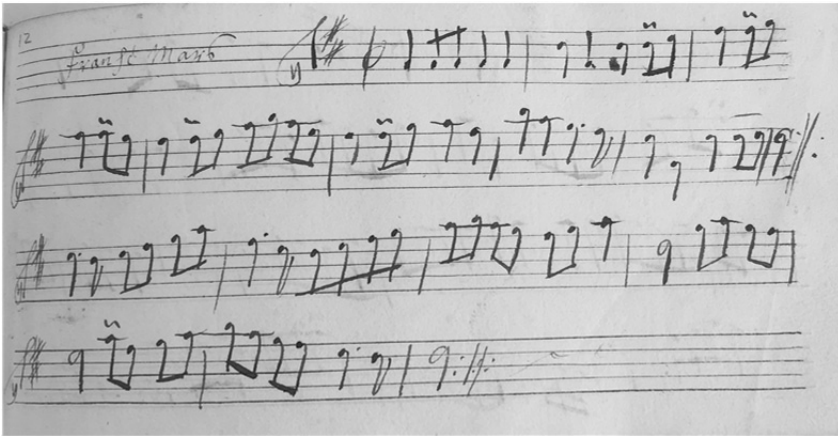 12
franst Mars